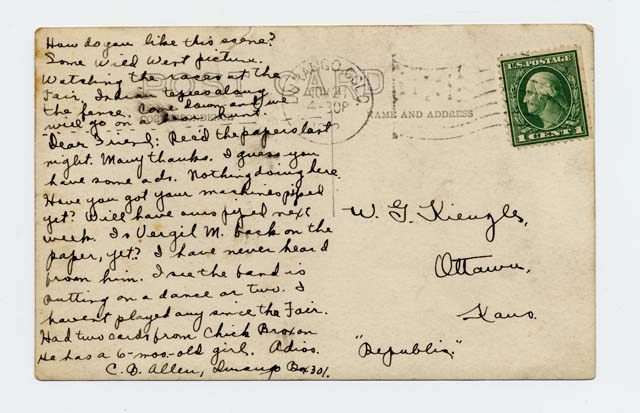 How do you like this scene?
Some Wild West picture.
Watching the races at the
Fair, Indian tepes along
the fence. Come down and we
will go on a hunt.
Dear Friend: Rec'd the papers last
night. Many thanks. I guess you
have some ads. Nothing doing here.
Have you got your machine piped
yet? Will have ours piped next
week. Is Vergil M. back on the
paper, yet? I have never heard
from him. I see the band is
putting on a dance or two. I
havent played any since the Fair.
Had two cards from Chick Broxon
He has a 6-mos-old girl. Adios.
C. B. Allen, Durango Box 301.
DURANGO, COLO.
4-30P
CARD
NAME AND ADDRESS
U.S. POSTAGE
1 CENT 1
W. G. Kiengle,
Ottawa,
Kans.
"Republic."